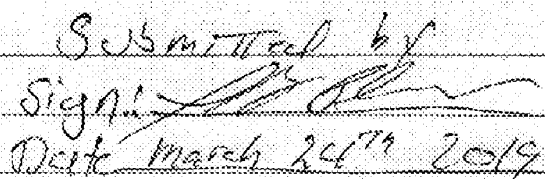 Submitted by
Sign:
Date March 24th 2019